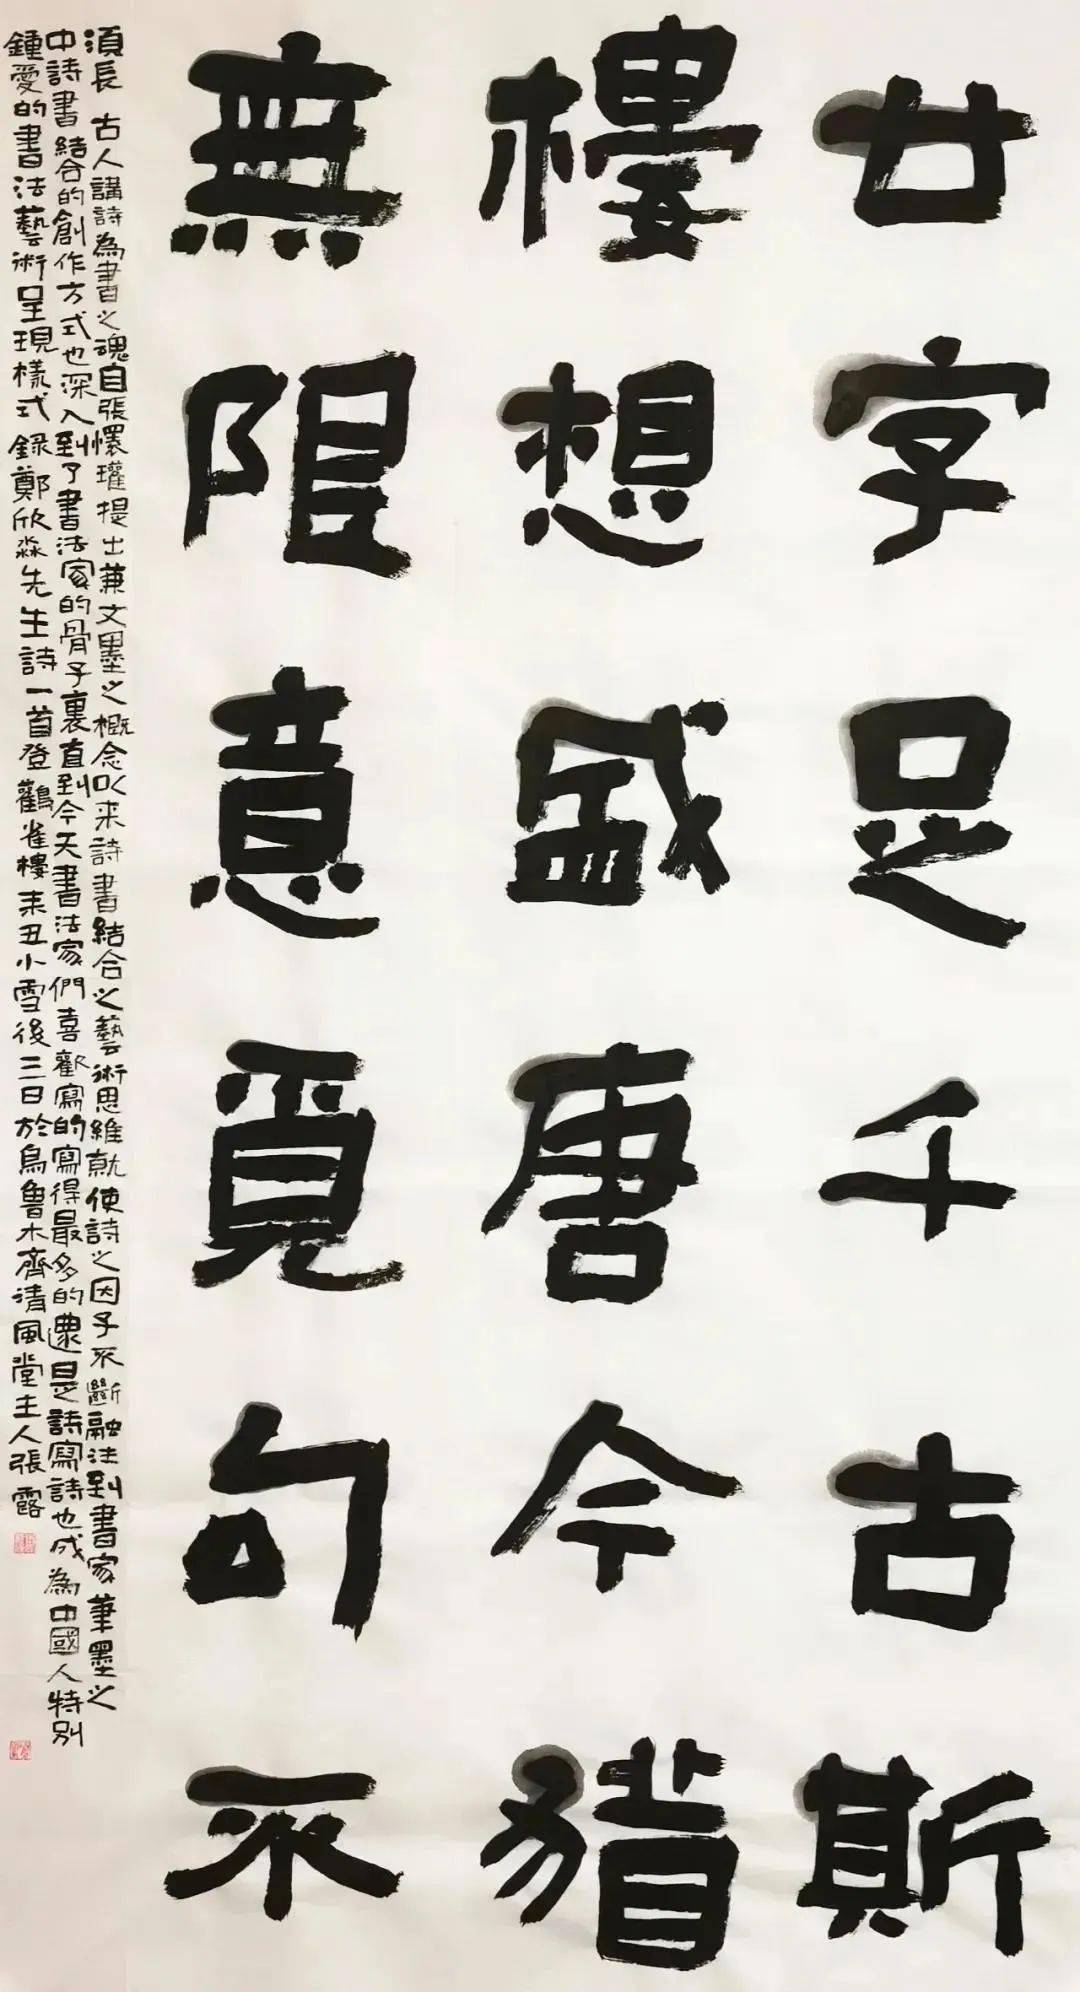 廿字足千古斯
樓想盛唐今猶
無限意覓句不
須長 古人講詩為書之魂自張懷瓘提出兼文墨之概念以來詩書結合之藝術思維就使詩之因子不斷融注到書家筆墨之
中詩書結合的創作方式也深入到了書法家的骨子裏直到今天書法家們喜歡寫的寫得最多的還是詩寫詩也成為中國人特別
鍾愛的書法藝術呈現樣式 錄鄭欣淼先生詩一首登鸛雀樓 辛丑小雪後三日於烏魯木齊清風堂主人張露